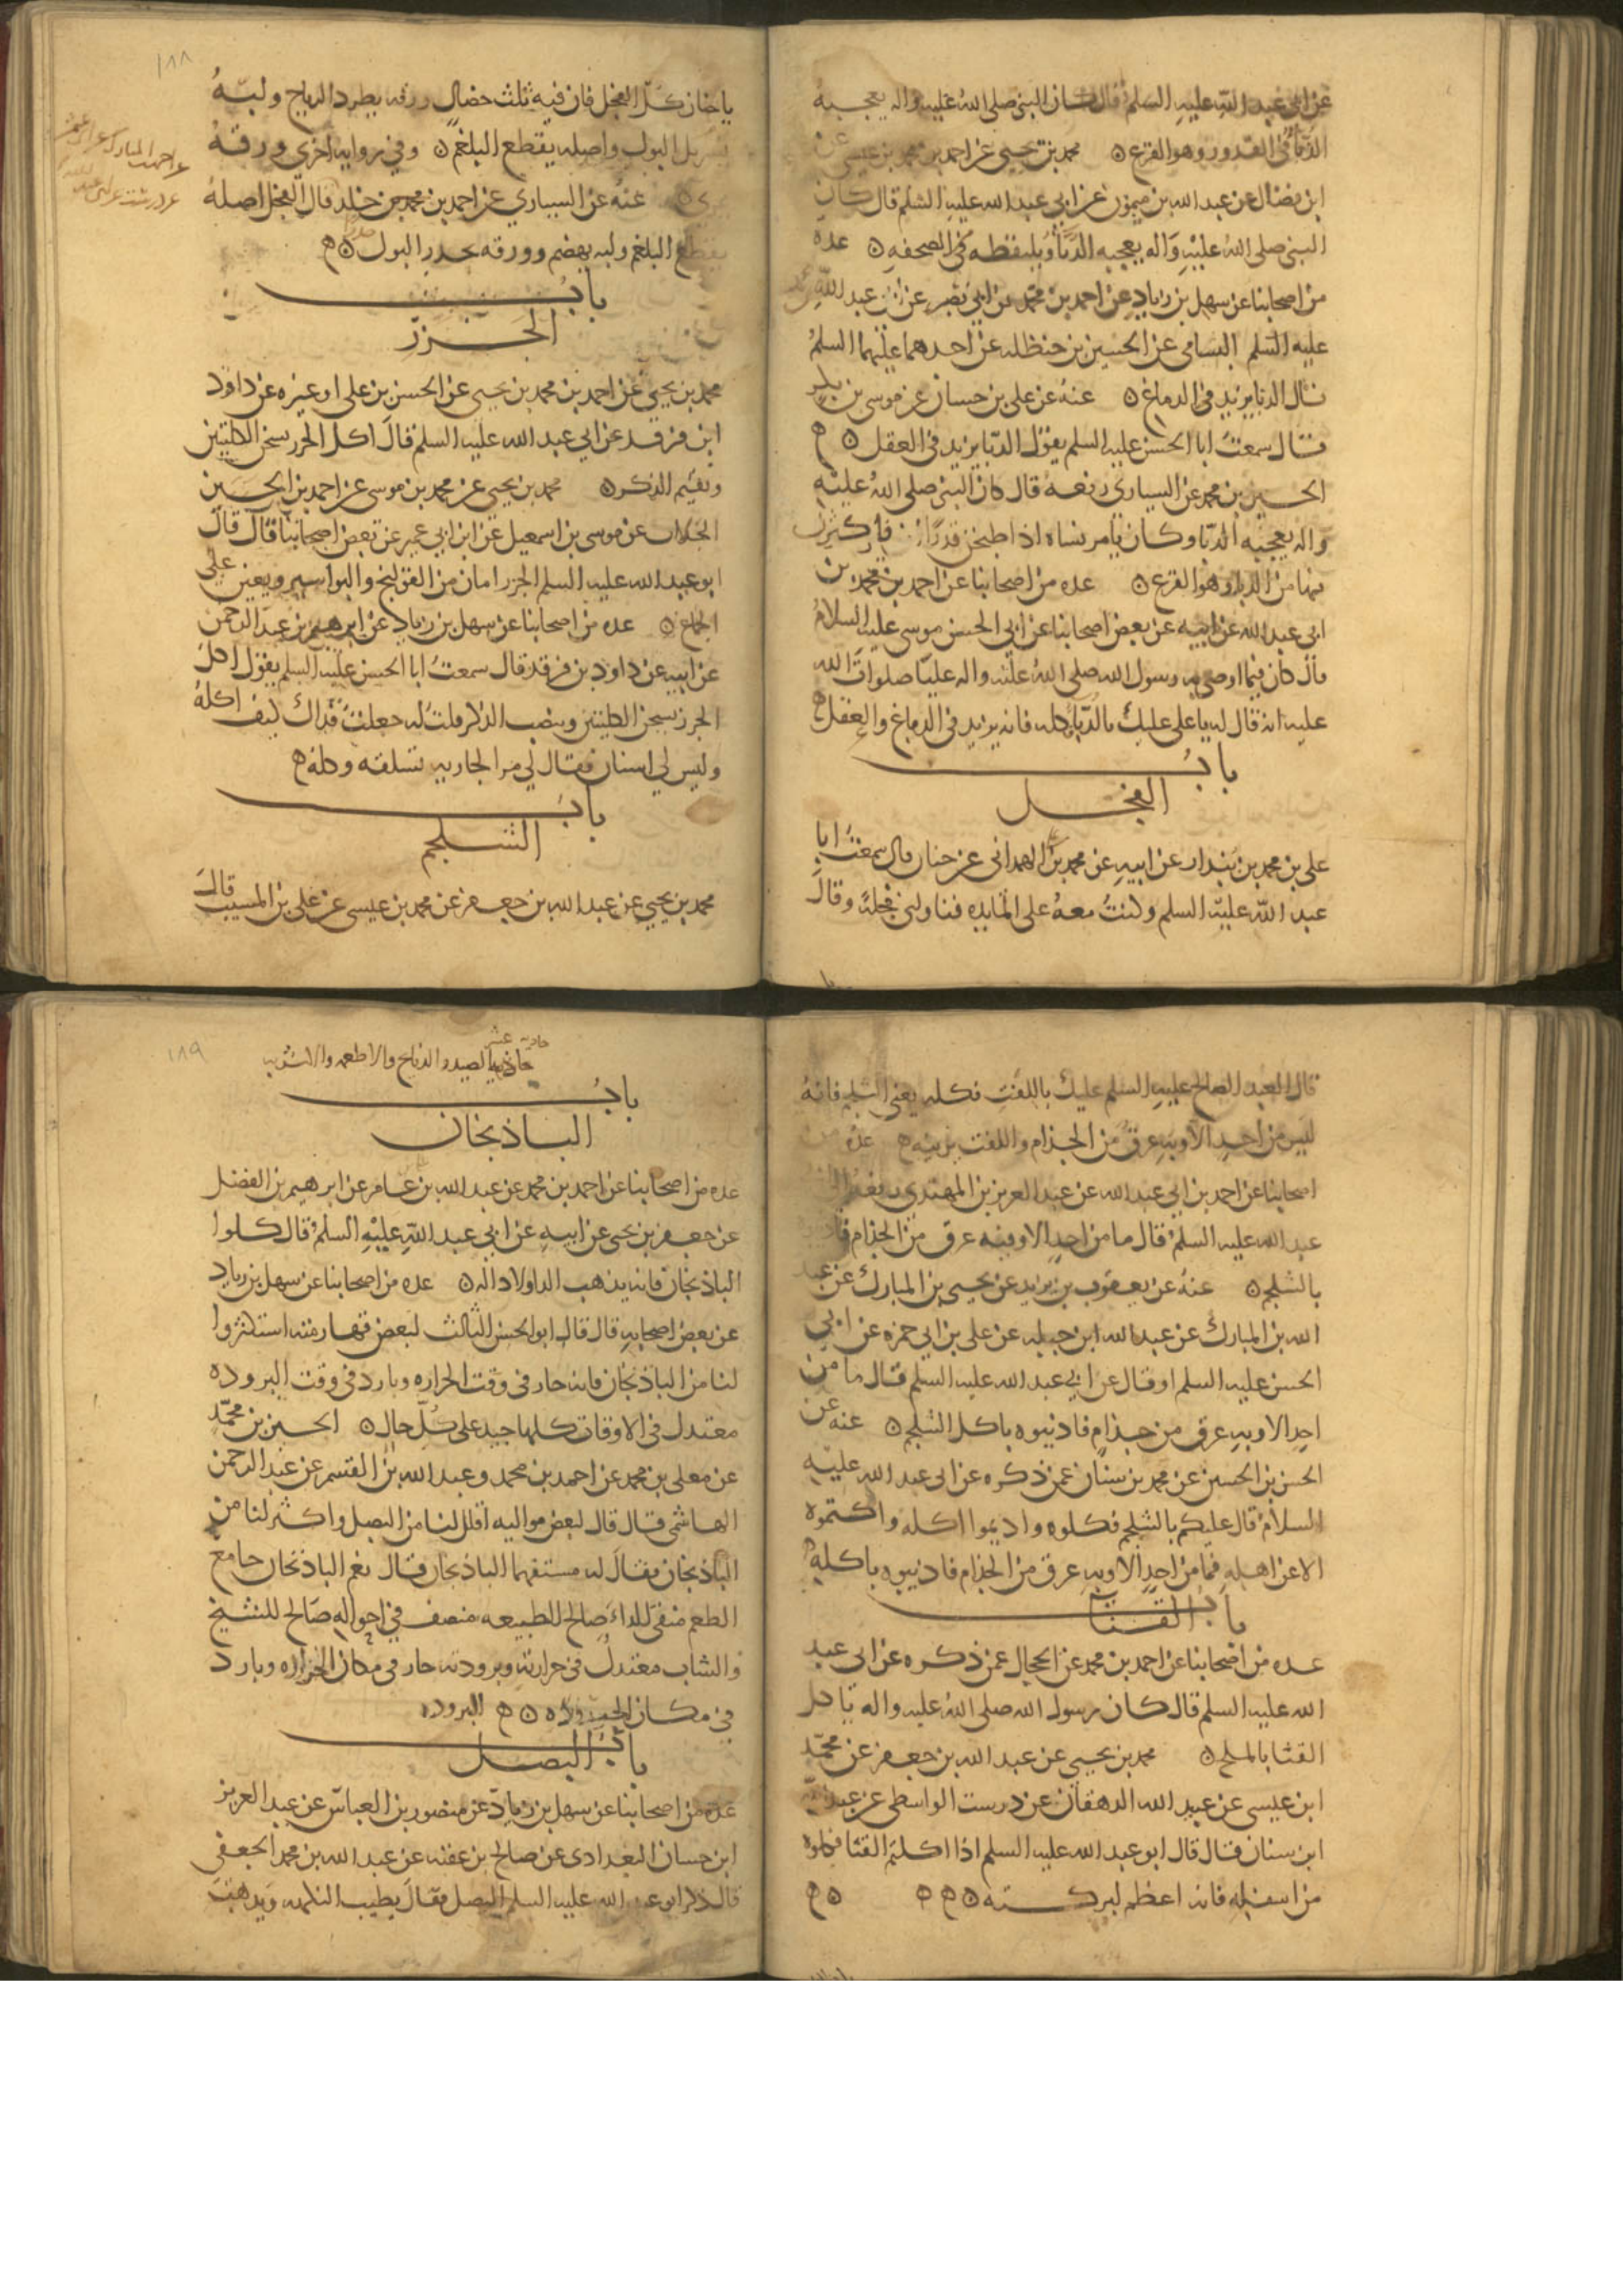 عن ابي عبد الله عليه السلم قال كان النبي صلى الله عليه واله يعجبه
الدبا في القدور وهو القرع محمد بن يحيى عن احمد بن محمد بن عيسى عن
ابن فضال عن عبد الله بن ميمون عن ابي عبد الله عليه السلم قال كان
النبي صلى الله عليه واله يعجبه الدبا ويلتقطه من الصحفه عده
من اصحابنا عن سهل بن زياد عن احمد بن محمد بن ابي نصر عن عبد الله
عليه السلم السامي عن الحسين بن حنظله عن احدهما عليهما السلم
قال الدبا يزيد في الدماغ عنه عن علي بن حسان عن موسى بن بكر
قال سمعت ابا الحسن عليه السلم يقول الدبا يزيد في العقل
الحسين بن محمد عن السياري رفعه قال كان النبي صلى الله عليه
واله يعجبه الدبا وكان يامر نساه اذا اطبخن قدرا فاكثرن
فيها من الدبا وهو القرع عده من اصحابنا عن احمد بن محمد بن
ابي عبد الله عن ابيه عن بعض اصحابنا عن ابي الحسن موسى عليه السلام
قال كان فيما اوصى به رسول الله صلى الله عليه واله عليا صلوات الله
عليه انه قال له يا علي عليك بالدبا وكله فانه يزيد في الدماغ والعقل
باب
الفجل
علي بن محمد بن بندار عن ابيه عن محمد بن الهمداني عن حنان قال سمعت ابا
عبد الله عليه السلم وكنت معه على المايده فناولني فجله وقال
١٨٨
يا حنان كل الفجل فان فيه ثلث خصال ورقه يطرد الرياح ولبه
يسربل البول واصله يقطع البلغم وفي روايه اخرى ورقه
يمري عنه عن السياري عن احمد بن محمد بن خالد قال الفجل اصله
يقطع البلغم ولبه يهضم وورقه يحدر البول
باب
الجزر
محمد بن يحيى عن احمد بن محمد بن يحيى عن الحسن بن علي او غيره عن داود
ابن فرقد عن ابي عبد الله عليه السلم قال اكل الجزر يسخن الكليتين
ويقيم الذكر محمد بن يحيى عن محمد بن موسى عن احمد بن الحسين
الجلاب عن موسى بن اسمعيل عن ابن ابي عمير عن بعض اصحابنا قال قال
ابو عبد الله عليه السلم الجزر امان من القولنج والبواسير ويعين على
الجماع عده من اصحابنا عن سهل بن زياد عن ابرهيم بن عبد الرحمن
عن ابيه عن داود بن فرقد قال سمعت ابا الحسن عليه السلم يقول اكل
الجزر يسخن الكليتين وينصب الذكر قلت له جعلت فداك كيف اكله
وليس لي اسنان فقال لي مر الجاريه تسلقه وكله
باب
الشلجم
محمد بن يحيى عن عبد الله بن جعفر عن محمد بن عيسى عن علي بن المسيب قال
قال العبد الصالح عليه السلم عليك باللفت فكله يعني الشلجم فانه
ليس من احد الا وبه عرق من الجذام واللفت يذيبه عده من
اصحابنا عن احمد بن ابي عبد الله عن عبد العزيز بن المهتدي رفعه الى
عبد الله عليه السلم قال ما من احد الا وفيه عرق من الجذام
بالشلجم عنه عن يعقوب بن يزيد عن يحيى بن المبارك عن عبد
الله بن المبارك عن عبد الله ابن جبله عن علي بن ابي حمزه عن ابي
الحسن عليه السلم او قال عن ابي عبد الله عليه السلم قال ما من
احد الا وبه عرق من جذام فاذيبوه باكل الشلجم عنه عن
الحسن بن الحسين عن محمد بن سنان عمن ذكره عن ابي عبد الله عليه
السلام قال عليكم بالشلجم فكلوه واديموا اكله واكتموه
الا عن اهله فما من احد الا وبه عرق من الجذام فاذيبوه باكله
باب القثا
عده من اصحابنا عن احمد بن محمد عن الحجال عمن ذكره عن ابي عبد
الله عليه السلم قال كان رسول الله صلى الله عليه واله ياكل
القثا بالملح محمد بن يحيى عن عبد الله بن جعفر عن محمد
ابن عيسى عن عبيد الله الدهقان عن درست الواسطي عن عبد الله
ابن سنان قال قال ابو عبد الله عليه السلم اذا اكلتم القثا فكلوه
من اسفله فانه اعظم لبركته
١٨٩
حاديه عشر
الصيد والذبايح والاطعمه والاشربه
باب
الباذنجان
عده من اصحابنا عن احمد بن محمد عن عبد الله بن عامر عن ابرهيم بن الفضل
عن جعفر بن يحيى عن ابيه عن ابي عبد الله عليه السلم قال كلوا
الباذنجان فانه يذهب الدا ولا دا له عده من اصحابنا عن سهل بن زياد
عن بعض اصحابه قال قال ابو الحسن الثالث لبعض قهارمته استكثروا
لنا من الباذنجان فانه حار في وقت الحراره وبارد في وقت البروده
معتدل في الاوقات كلها جيد على كل حال الحسين بن محمد
عن معلى بن محمد عن احمد بن محمد وعبد الله بن القسم عن عبد الرحمن
الهاشمي قال قال لبعض مواليه اقلل لنا من البصل واكثر لنا من
الباذنجان فقال له مستفهما الباذنجان قال نعم الباذنجان جامع
الطعم منفي للداء صالح للطبيعه منصف في احواله صالح للشيخ
والشاب معتدل في حرارته وبرودته حار في مكان الحراره وبارد
في مكان البروده
باب البصل
عده من اصحابنا عن سهل بن زياد عن منصور بن العباس عن عبد العزيز
ابن حسان البغدادي عن صالح بن عقبه عن عبد الله بن محمد الجعفي
قال ذكر ابو عبد الله عليه السلم البصل فقال يطيب النكهه ويذهب